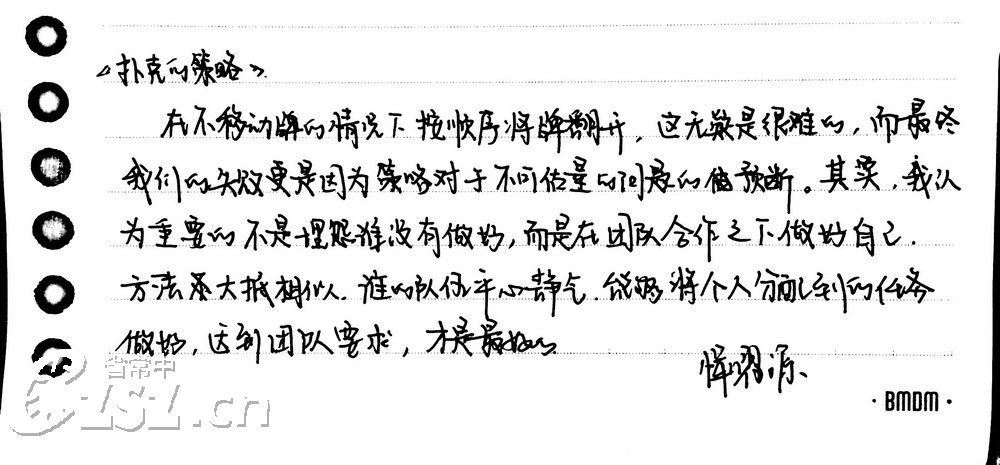 《扑克的策略》
在不移动牌的情况下按顺序将牌翻开，这无疑是很难的，而最终
我们的失败更是因为策略对于不可估量的问题的预断。其实，我认
为重要的不是埋怨谁没有做好，而是在团队合作之下做好自己。
方法都大抵相似，谁的队伍平心静气，能够将个人分配到的任务
做好，达到团队要求，才是最好的。
恽耀源
·BMDM·
省常中
ZSZ.cn